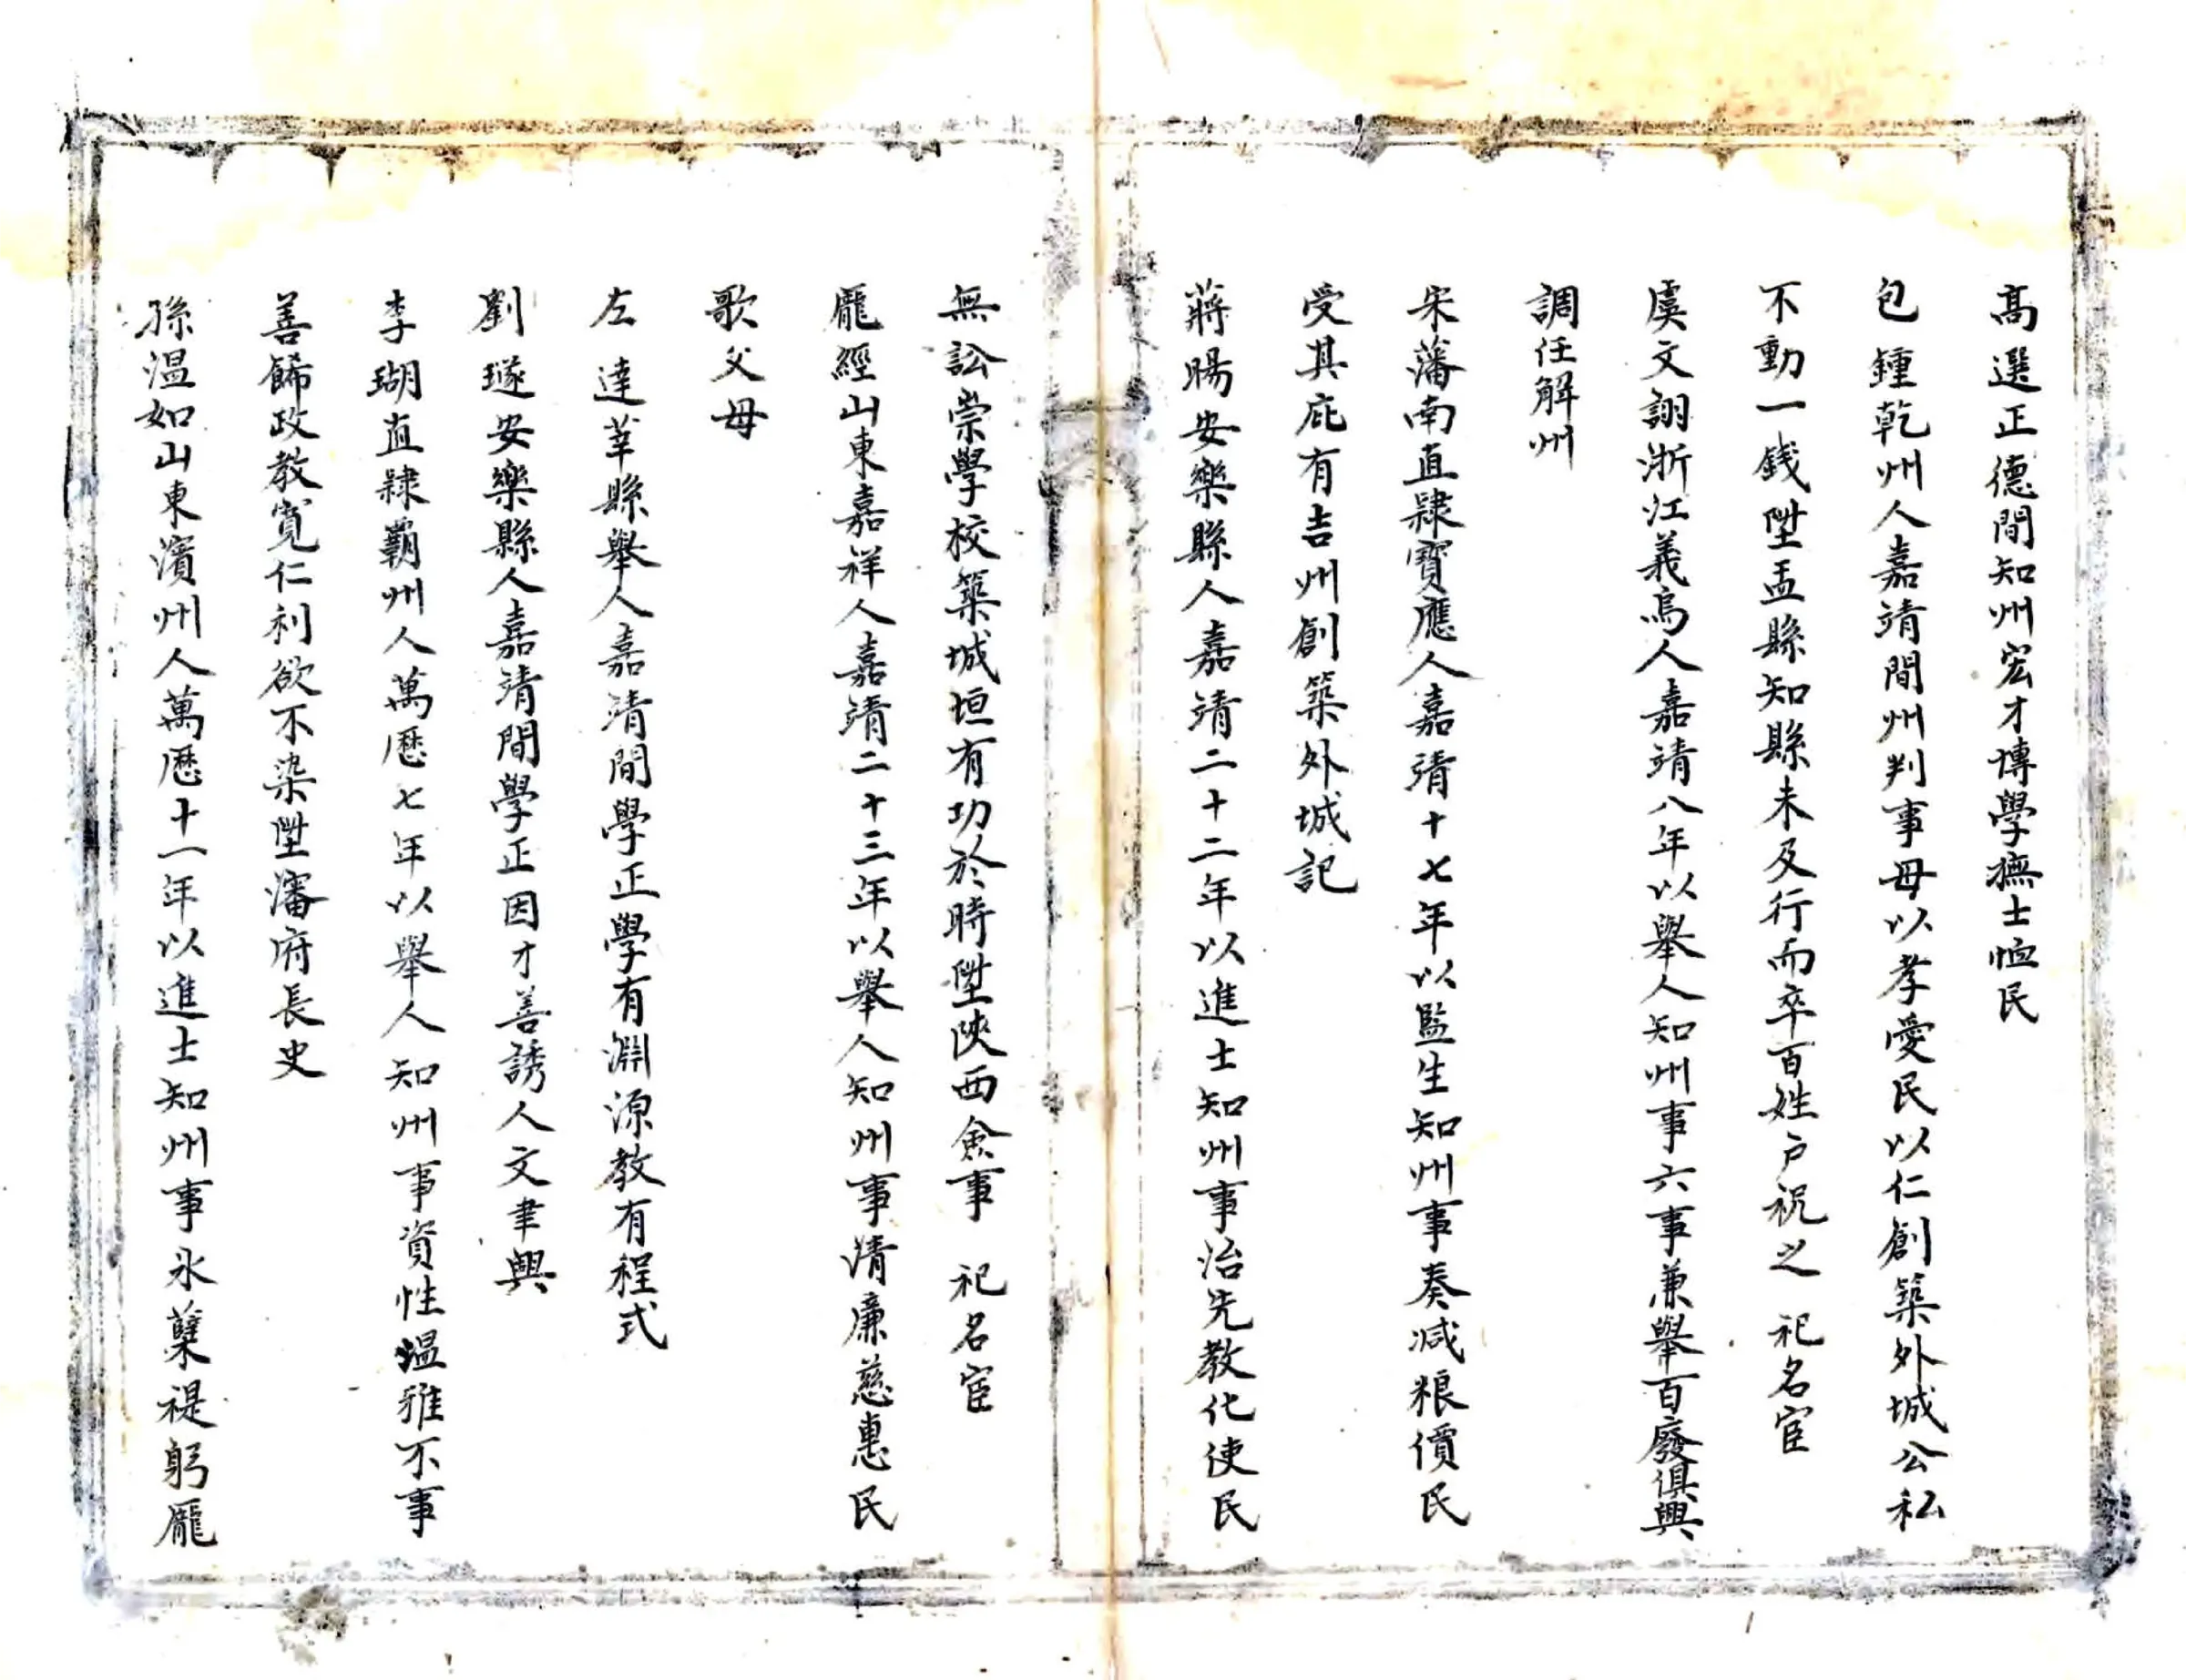 高選正德間知州宏才博學撫士恤民
包鍾乾州人嘉靖間州判事母以孝愛民以仁創築外城公私
不動一錢陞盂縣知縣未及行而卒百姓户祝之 祀名宦
虞文詡浙江義烏人嘉靖八年以舉人知州事六事兼舉百廢俱興
調任解州
宋藩南直隸寶應人嘉靖十七年以監生知州事奏减粮價民
受其庇有吉州創築外城記
蔣暘安樂縣人嘉靖二十二年以進士知州事治先教化使民
無訟崇學校築城垣有功於時陞陝西僉事 祀名宦
龎經山東嘉祥人嘉靖二十三年以舉人知州事清廉慈惠民
歌父母
左達莘縣舉人嘉靖間學正學有淵源教有程式
劉璲安樂縣人嘉靖間學正因才善誘人文聿興
李瑚直隸霸州人萬曆七年以舉人知州事資性温雅不事
善餙政教寬仁利欲不染陞瀋府長史
孫温如山東濱州人萬曆十一年以進士知州事氷蘖禔躬龎